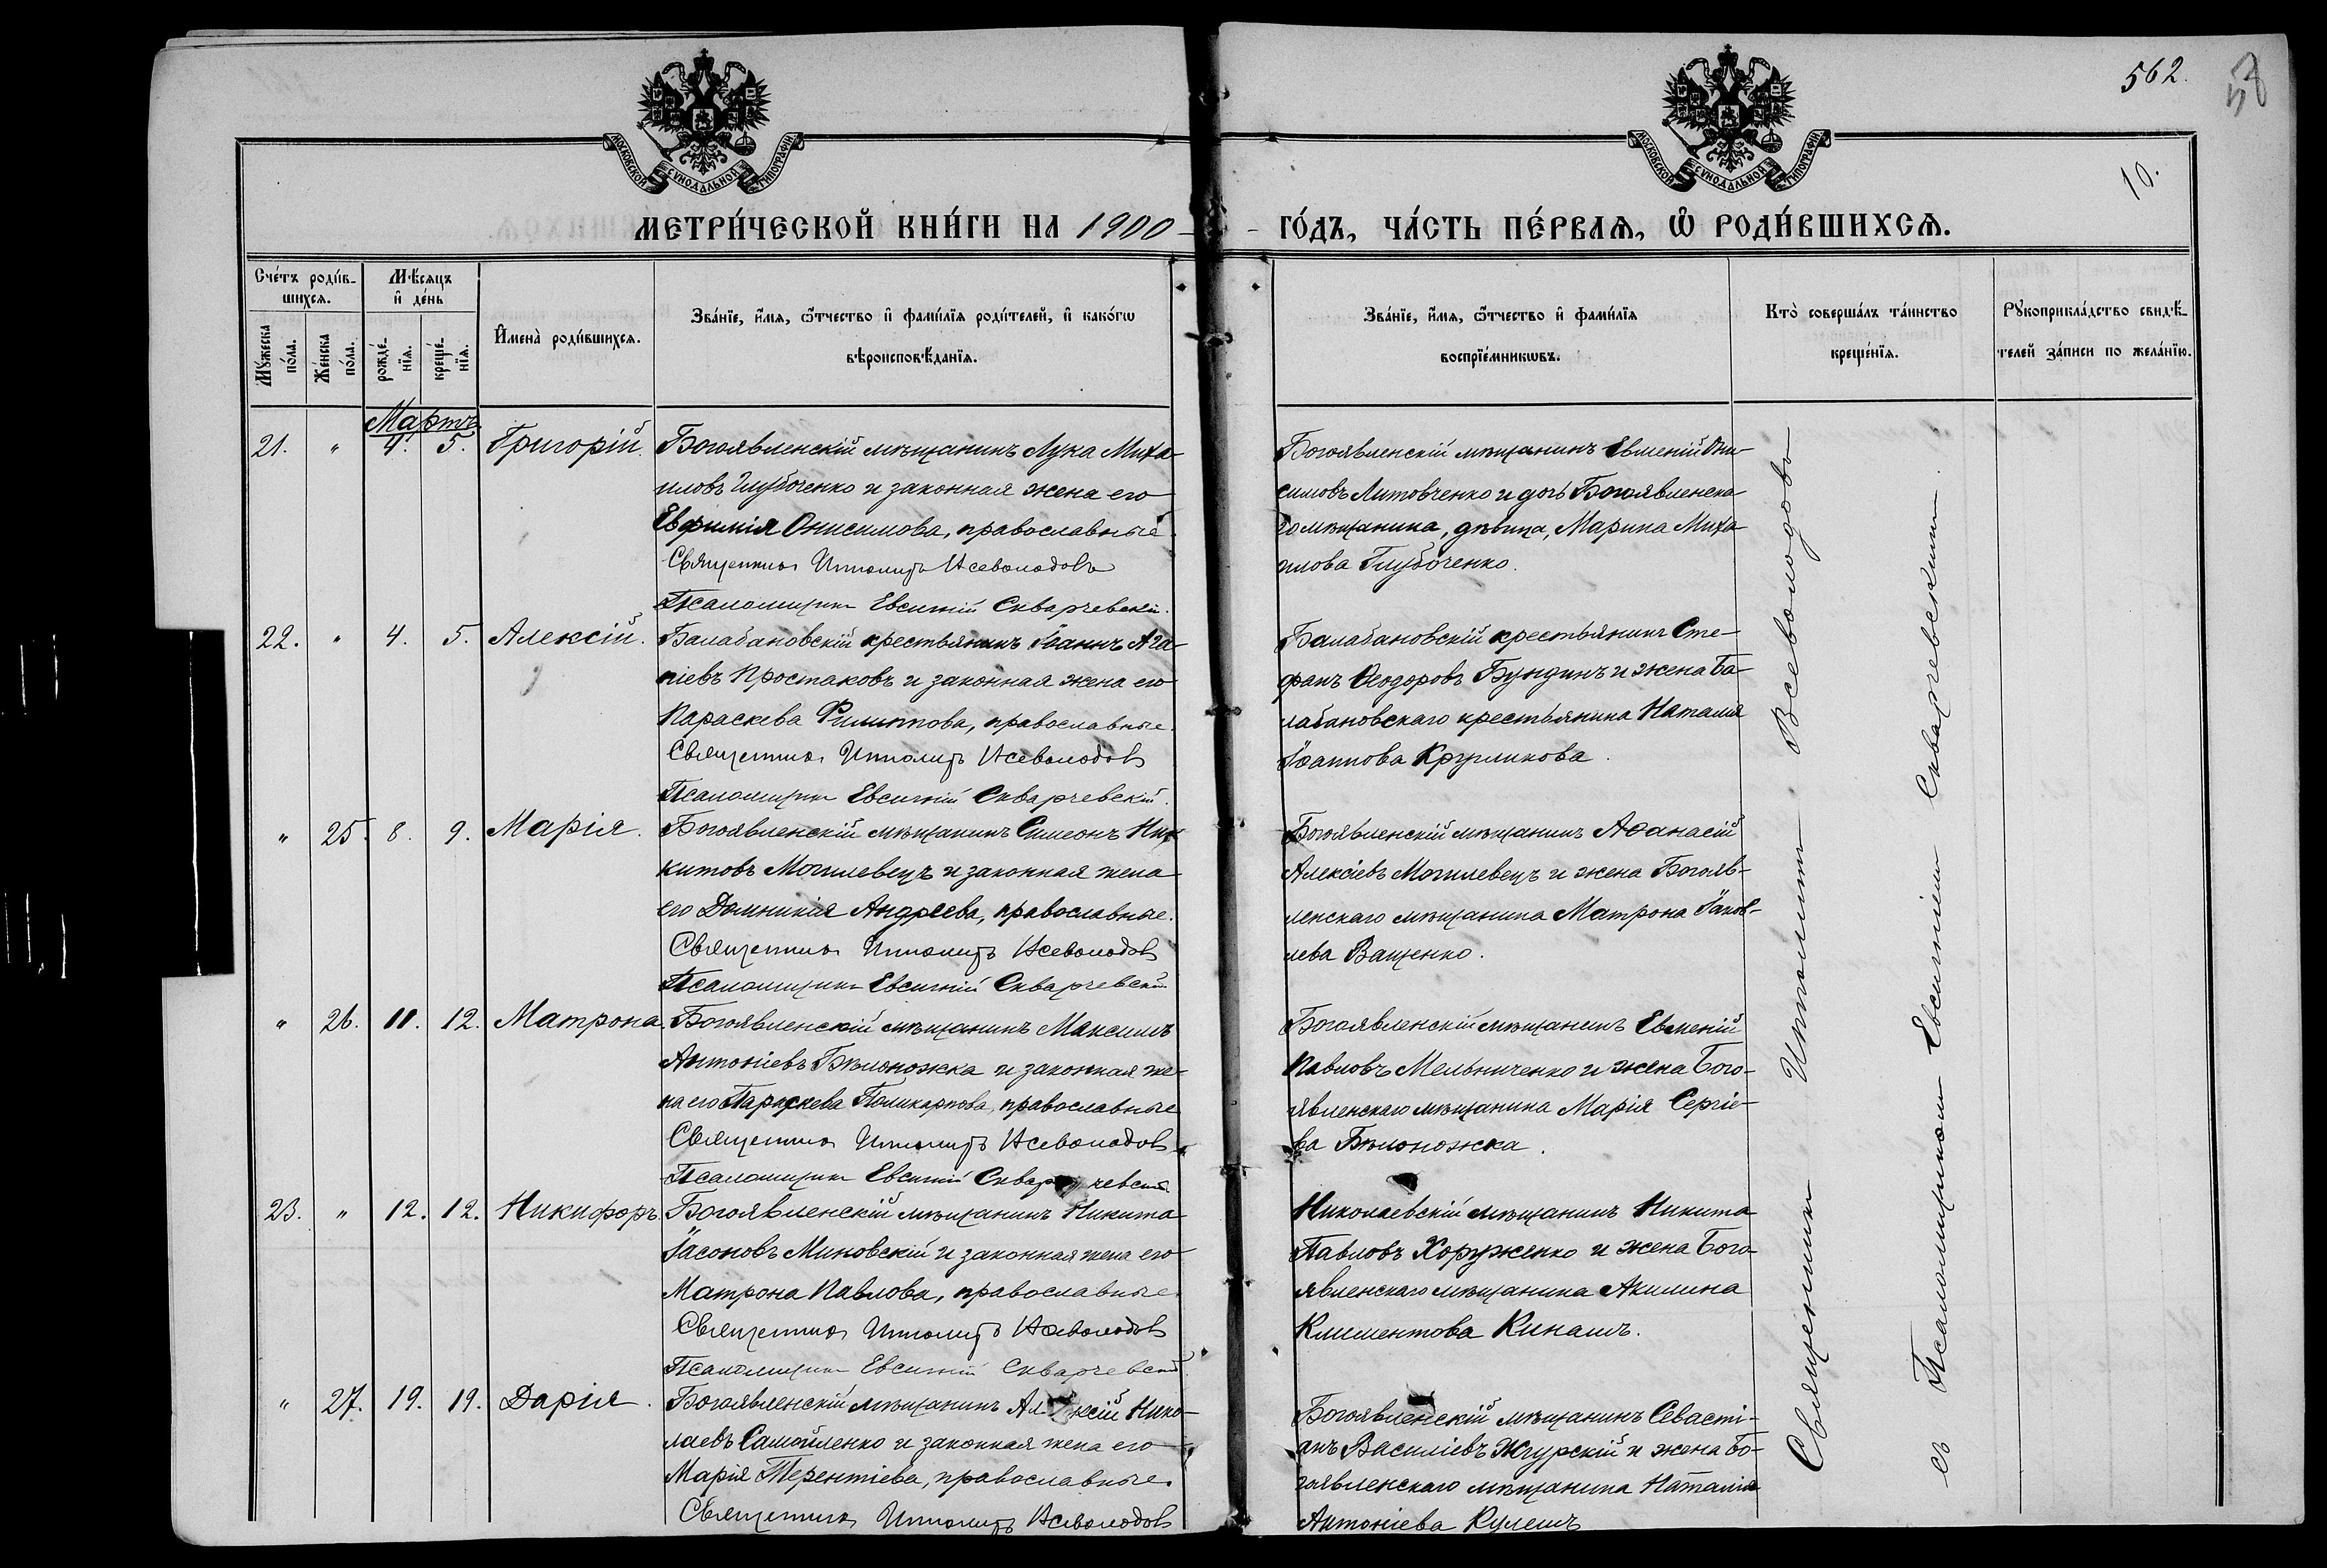 562.
58
10.
МОСКОВСКОЙ СѴНОДАЛЬНОЙ ТИПОГРАФІИ
МОСКОВСКОЙ СѴНОДАЛЬНОЙ ТИПОГРАФІИ
МЕТРИ́ЧЕСКОЙ КНИ́ГИ НА 1900 ГО́ДЪ, ЧА́СТЬ ПЕ́РВАѦ, Ѽ РОДИ́ВШИХСѦ.
Сче́тъ роди́в-
шихсѧ.
Мꙋ́жеска
по́ла.
Же́нска
по́ла.
Мѣ́сѧцъ
и҆ де́нь
рожде́-
нїѧ.
креще́-
нїѧ.
И҆мена̀ роди́вшихсѧ.
Зва́нїе, и҆́мѧ, ѻ҆́тчество и҆ фами́лїѧ роди́телей, и҆ како́гѡ
вѣроисповѣ́данїѧ.
Зва́нїе, и҆́мѧ, ѻ҆́тчество и҆ фами́лїѧ
воспрїе́мникѡвъ.
Кто̀ соверша́лъ та́инство
креще́нїѧ.
Рꙋкоприкла́дство свидѣ́-
телей за́писи по жела́нїю.
Мартъ
21. " 4. 5. Григорій.
Богоявленскій мѣщанинъ Лука Миха-
иловъ Глубоченко и законная жена его
Евфимія Онисимова, православные.
Священникъ Ипполитъ Всеволодовъ
Псаломщикъ Евсигній Скварчевскій.
Богоявленскій мѣщанинъ Евменій Они-
симовъ Литовченко и дочь Богоявленска-
го мѣщанина, дѣвица, Марина Миха-
илова Глубоченко.
22. " 4. 5. Алексій.
Балабановскій крестьянинъ Іоаннъ Ага-
піевъ Простаковъ и законная жена его
Параскева Филиппова, православные.
Священникъ Ипполитъ Всеволодовъ
Псаломщикъ Евсигній Скварчевскій.
Балабановскій крестьянинъ Сте-
фанъ Ѳеодоровъ Бундинъ и жена Ба-
лабановскаго крестьянина Наталія
Іоаннова Кругликова.
" 25. 8. 9. Марія.
Богоявленскій мѣщанинъ Симеонъ Ни-
китовъ Могилевецъ и законная жена
его Домникія Андреева, православные.
Священникъ Ипполитъ Всеволодовъ
Псаломщикъ Евсигній Скварчевскій
Богоявленскій мѣщанинъ Аѳанасій
Алексіевъ Могилевецъ и жена Богояв-
ленскаго мѣщанина Матрона Іаков-
лева Ващенко.
" 26. 11. 12. Матрона.
Богоявленскій мѣщанинъ Максимъ
Антоніевъ Бѣлоножка и законная же-
на его Параскева Поликарпова, православные
Священникъ Ипполитъ Всеволодовъ
Псаломщикъ Евсигній Скварчевскій.
Богоявленскій мѣщанинъ Евменій
Павловъ Мельниченко и жена Бого-
явленскаго мѣщанина Марія Сергіе-
ва Бѣлоножка.
23. " 12. 12. Никифоръ.
Богоявленскій мѣщанинъ Никита
Іасоновъ Миновскій и законная жена его
Матрона Павлова, православные.
Священникъ Ипполитъ Всеволодовъ
Псаломщикъ Евсигній Скварчевскій
Николаевскій мѣщанинъ Никита
Павловъ Хоруженко и жена Бого-
явленскаго мѣщанина Акилина
Климентова Кинашъ.
" 27. 19. 19. Дарія.
Богоявленскій мѣщанинъ Алексій Нико-
лаевъ Самойленко и законная жена его
Марія Терентіева, православные.
Священникъ Ипполитъ Всеволодовъ
Богоявленскій мѣщанинъ Севасті-
анъ Василіевъ Жгурскій и жена Бо-
гоявленскаго мѣщанина Наталія
Антоніева Кулешъ
Священникъ Ипполитъ Всеволодовъ
съ Псаломщикомъ Евсигніемъ Скварчевскимъ.